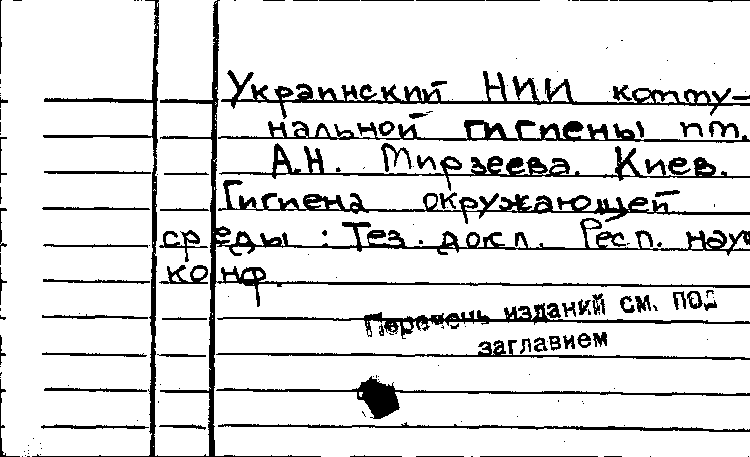 Украинский НИИ комму-
нальной гигиены им.
А.Н. Мирзеева. Киев.
Гигиена окружающей
среды : Тез. докл. Респ. науч
конф.
Перечень изданий см. под
заглавием